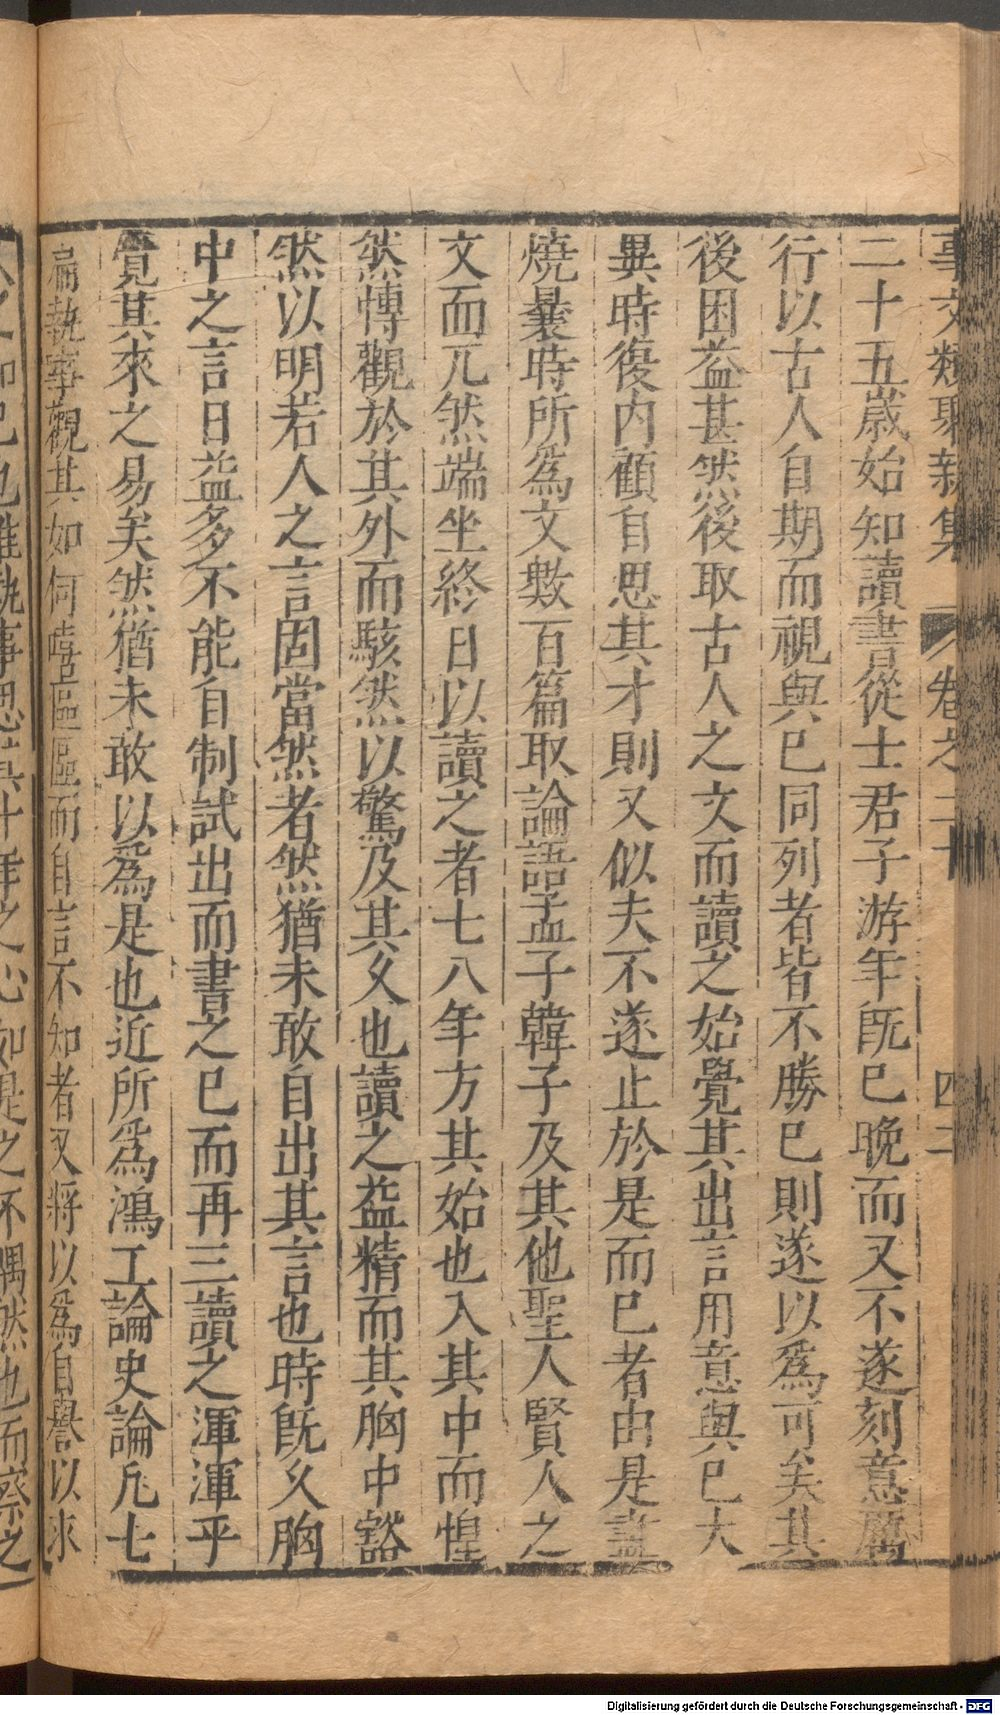 事文類聚新集 卷之二十 四二
二十五歲始知讀書從士君子游年旣已晚而又不遂刻意厲
行以古人自期而視與已同列者皆不勝已則遂以爲可矣其
後困益甚然後取古人之文而讀之始覺其出言用意與已大
異時復内顧自思其才則又似夫不遂止於是而已者由是盡
燒曩時所爲文數百篇取論語孟子韓子及其他聖人賢人之
文而兀然端坐終日以讀之者七八年方其始也入其中而惶
然慱觀於其外而駭然以驚及其乆也讀之益精而其胸中豁
然以明若人之言固當然者然猶未敢自出其言也時旣乆胸
中之言日益多不能自制試出而書之已而再三讀之渾渾乎
覺其來之易矣然猶未敢以爲是也近所爲鴻工論史論凡七
扁執事觀其如何嘻區區而自言不知者又將以爲自譽以求
人之知已也惟執事思其十年之心如是之不偶然也而察之
Digitalisierung gefördert durch die Deutsche Forschungsgemeinschaft - DFG